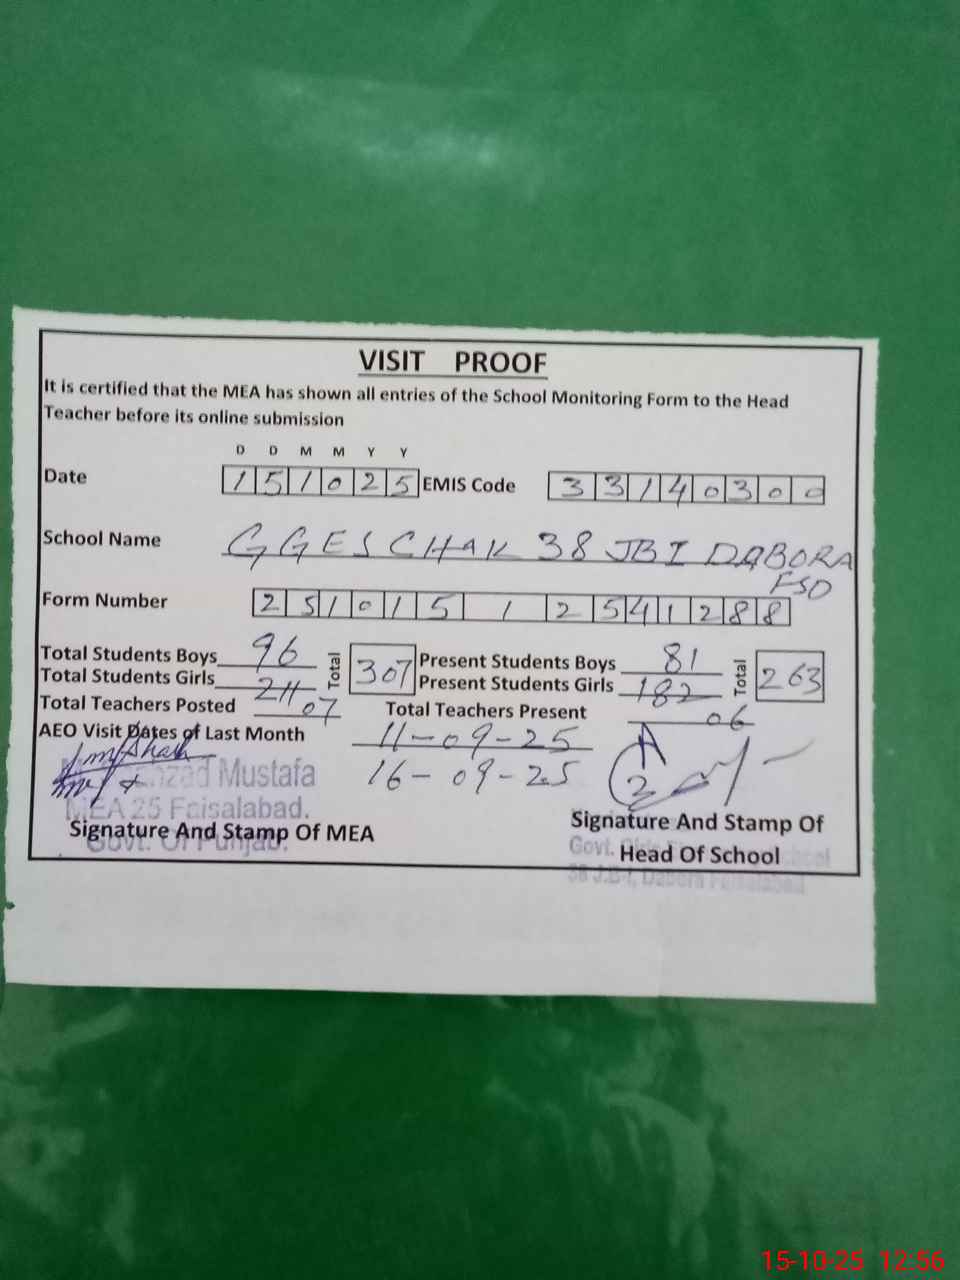 VISIT PROOF
It is certified that the MEA has shown all entries of the School Monitoring Form to the Head
Teacher before its online submission
D D M M Y Y
Date 1 5 1 0 2 5 EMIS Code 3 3 1 4 0 3 0 0
School Name GGES CHAK 38 JBI DABORA
FSD
Form Number 2 5 1 0 1 5 1 2 5 4 1 2 8 8
Total Students Boys 96 Total 307 Present Students Boys 81 Total 263
Total Students Girls 211 Present Students Girls 182
Total Teachers Posted 07 Total Teachers Present 06
AEO Visit Dates of Last Month 11-09-25
16-09-25
Mustafa
MEA 25 Faisalabad.
Signature And Stamp Of MEA
Govt. Of Punjab.
Signature And Stamp Of
Govt. Girls
Head Of School
38 J.B-I, Dabora Faisalabad
15-10-25 12:56